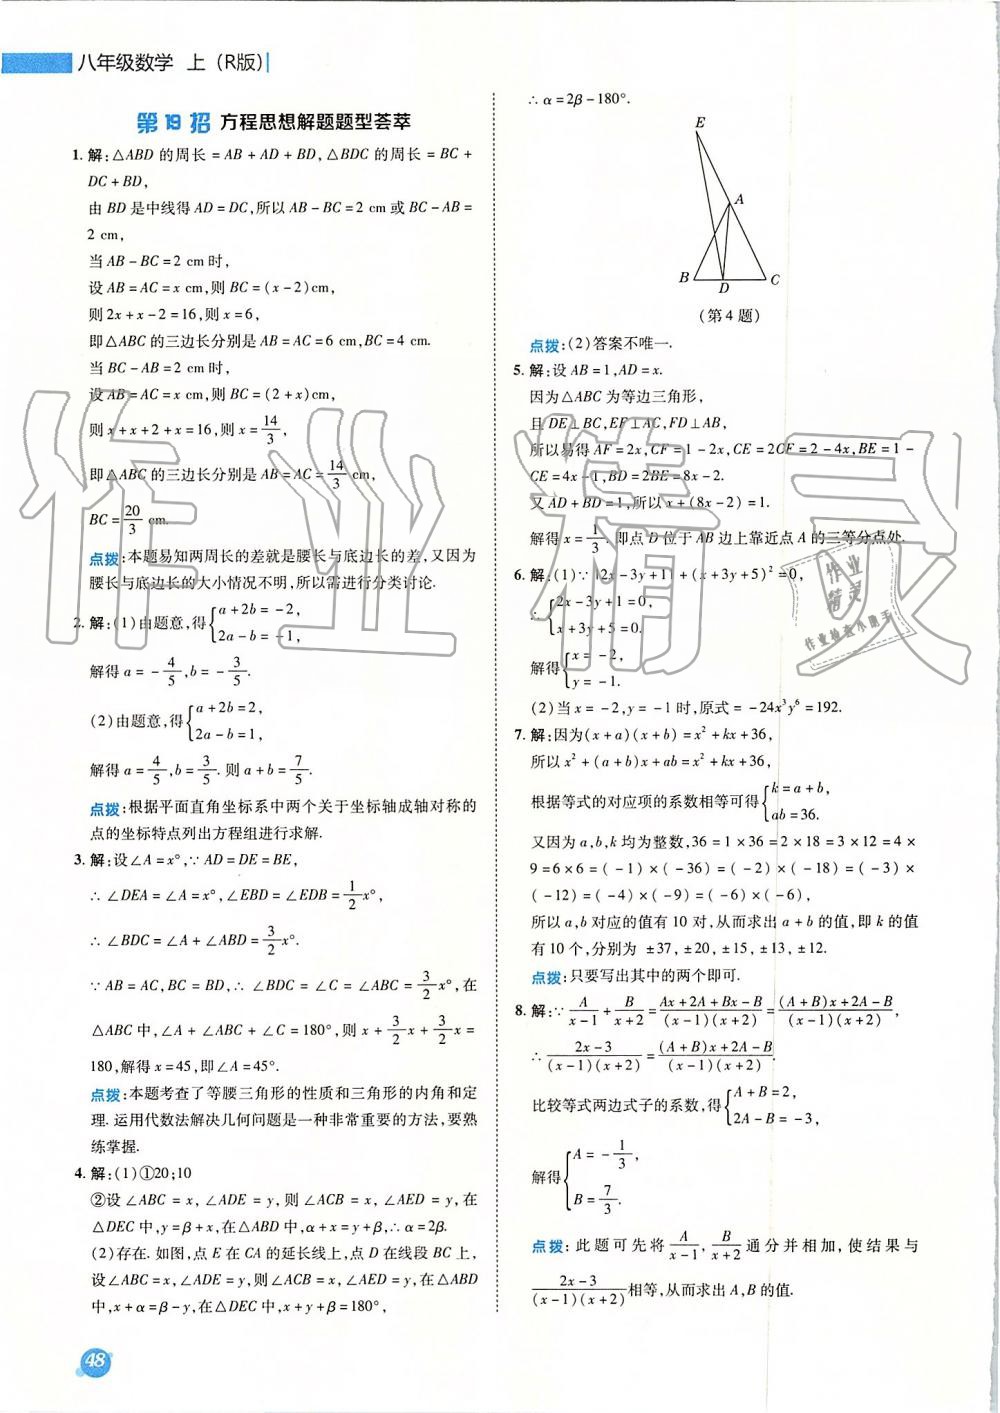 八年级数学 上（R版）
第19招 方程思想解题题型荟萃
1. 解:△ABD 的周长 = AB + AD + BD,△BDC 的周长 = BC +
DC + BD,
由 BD 是中线得 AD = DC,所以 AB - BC = 2 cm 或 BC - AB =
2 cm,
当 AB - BC = 2 cm 时,
设 AB = AC = x cm,则 BC = (x - 2)cm,
则 2x + x - 2 = 16,则 x = 6,
即△ABC 的三边长分别是 AB = AC = 6 cm,BC = 4 cm.
当 BC - AB = 2 cm 时,
设 AB = AC = x cm,则 BC = (2 + x)cm,
则 x + x + 2 + x = 16,则 x = 14/3,
即△ABC 的三边长分别是 AB = AC = 14/3 cm,
BC = 20/3 cm.
点拨:本题易知两周长的差就是腰长与底边长的差,又因为
腰长与底边长的大小情况不明,所以需进行分类讨论.
2. 解:(1)由题意,得{a + 2b = -2,
2a - b = -1,
解得 a = -4/5,b = -3/5.
(2)由题意,得{a + 2b = 2,
2a - b = 1,
解得 a = 4/5,b = 3/5. 则 a + b = 7/5.
点拨:根据平面直角坐标系中两个关于坐标轴成轴对称的
点的坐标特点列出方程组进行求解.
3. 解:设∠A = x°,∵ AD = DE = BE,
∴ ∠DEA = ∠A = x°,∠EBD = ∠EDB = 1/2 x°,
∴ ∠BDC = ∠A + ∠ABD = 3/2 x°.
∵ AB = AC,BC = BD,∴ ∠BDC = ∠C = ∠ABC = 3/2 x°,在
△ABC 中,∠A + ∠ABC + ∠C = 180°,则 x + 3/2 x + 3/2 x =
180,解得 x = 45,即∠A = 45°.
点拨:本题考查了等腰三角形的性质和三角形的内角和定
理. 运用代数法解决几何问题是一种非常重要的方法,要熟
练掌握.
4. 解:(1)①20;10
②设∠ABC = x,∠ADE = y,则∠ACB = x,∠AED = y,在
△DEC 中,y = β + x,在△ABD 中,α + x = y + β,∴ α = 2β.
(2)存在. 如图,点 E 在 CA 的延长线上,点 D 在线段 BC 上,
设∠ABC = x,∠ADE = y,则∠ACB = x,∠AED = y,在△ABD
中,x + α = β - y,在△DEC 中,x + y + β = 180°,
48
∴ α = 2β - 180°.
E
A
B D C
(第 4 题)
点拨:(2)答案不唯一.
5. 解:设 AB = 1,AD = x.
因为△ABC 为等边三角形,
且 DE⊥BC,EF⊥AC,FD⊥AB,
所以易得 AF = 2x,CF = 1 - 2x,CE = 2CF = 2 - 4x,BE = 1 -
CE = 4x - 1,BD = 2BE = 8x - 2.
又 AD + BD = 1,所以 x + (8x - 2) = 1.
解得 x = 1/3. 即点 D 位于 AB 边上靠近点 A 的三等分点处.
6. 解:(1)∵ |2x - 3y + 1| + (x + 3y + 5)² = 0,
∴ {2x - 3y + 1 = 0,
x + 3y + 5 = 0.
解得{x = -2,
y = -1.
(2)当 x = -2,y = -1 时,原式 = -24x³y⁶ = 192.
7. 解:因为(x + a)(x + b) = x² + kx + 36,
所以 x² + (a + b)x + ab = x² + kx + 36,
根据等式的对应项的系数相等可得{k = a + b,
ab = 36.
又因为 a,b,k 均为整数,36 = 1 × 36 = 2 × 18 = 3 × 12 = 4 ×
9 = 6 × 6 = ( - 1) × ( - 36) = ( - 2) × ( - 18) = ( - 3) ×
( - 12) = ( - 4) × ( - 9) = ( - 6) × ( - 6),
所以 a,b 对应的值有 10 对,从而求出 a + b 的值,即 k 的值
有 10 个,分别为 ±37,±20,±15,±13,±12.
点拨:只要写出其中的两个即可.
8. 解:∵ A/(x-1) + B/(x+2) = (Ax+2A+Bx-B)/((x-1)(x+2)) = ((A+B)x+2A-B)/((x-1)(x+2)),
∴ (2x-3)/((x-1)(x+2)) = ((A+B)x+2A-B)/((x-1)(x+2)).
比较等式两边式子的系数,得{A + B = 2,
2A - B = -3,
解得{A = -1/3,
B = 7/3.
点拨:此题可先将 A/(x-1), B/(x+2) 通分并相加,使结果与
(2x-3)/((x-1)(x+2)) 相等,从而求出 A,B 的值.
作业精灵
作业
精灵
作业检查小助手